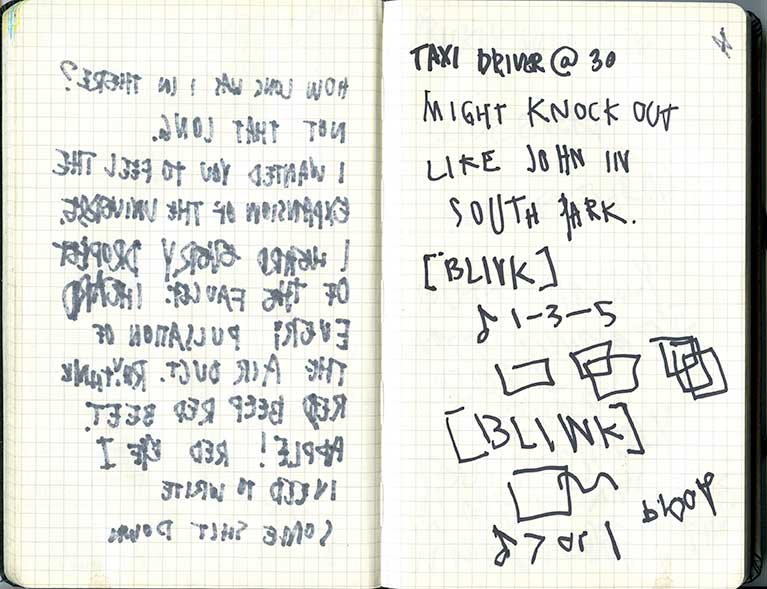 HOW LONG WAS I IN THERE?
NOT THAT LONG.
I WANTED YOU TO FEEL THE
EXPANSION OF THE UNIVERSE.
I HEARD EVERY DROPLET
OF THE FAUCET. I HEARD
EVERY PULSATION OF
THE AIR DUCT.
RED BEEP RED BEET.
APPLE! RED I
I NEED TO WRITE
SOME SHIT DOWN
TAXI DRIVER @ 30
MIGHT KNOCK OUT
LIKE JOHN IN
SOUTH PARK.
[BLINK]
♪ 1-3-5
[BLINK]
bloop
♪ 7 or 1